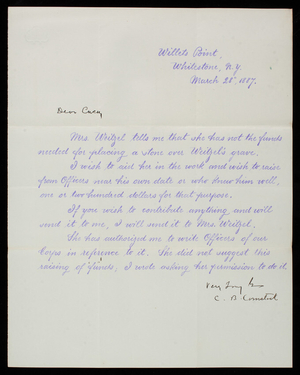 Willets Point,
Whitestone, N.Y.
March 20, 1887.
Dear Casey
Mrs. Weitzel tells me that she has not the funds
needed for placing a stone over Weitzel's grave.
I wish to aid her in the work and wish to raise
from Officers near his own date or who knew him well,
one or two hundred dollars for that purpose.
If you wish to contribute anything, and will
send it to me, I will send it to Mrs. Weitzel.
She has authorized me to write Officers of our
Corps in reference to it. She did not suggest this
raising of funds; I wrote asking her permission to do it.
Very Truly Yrs
C. B. Comstock